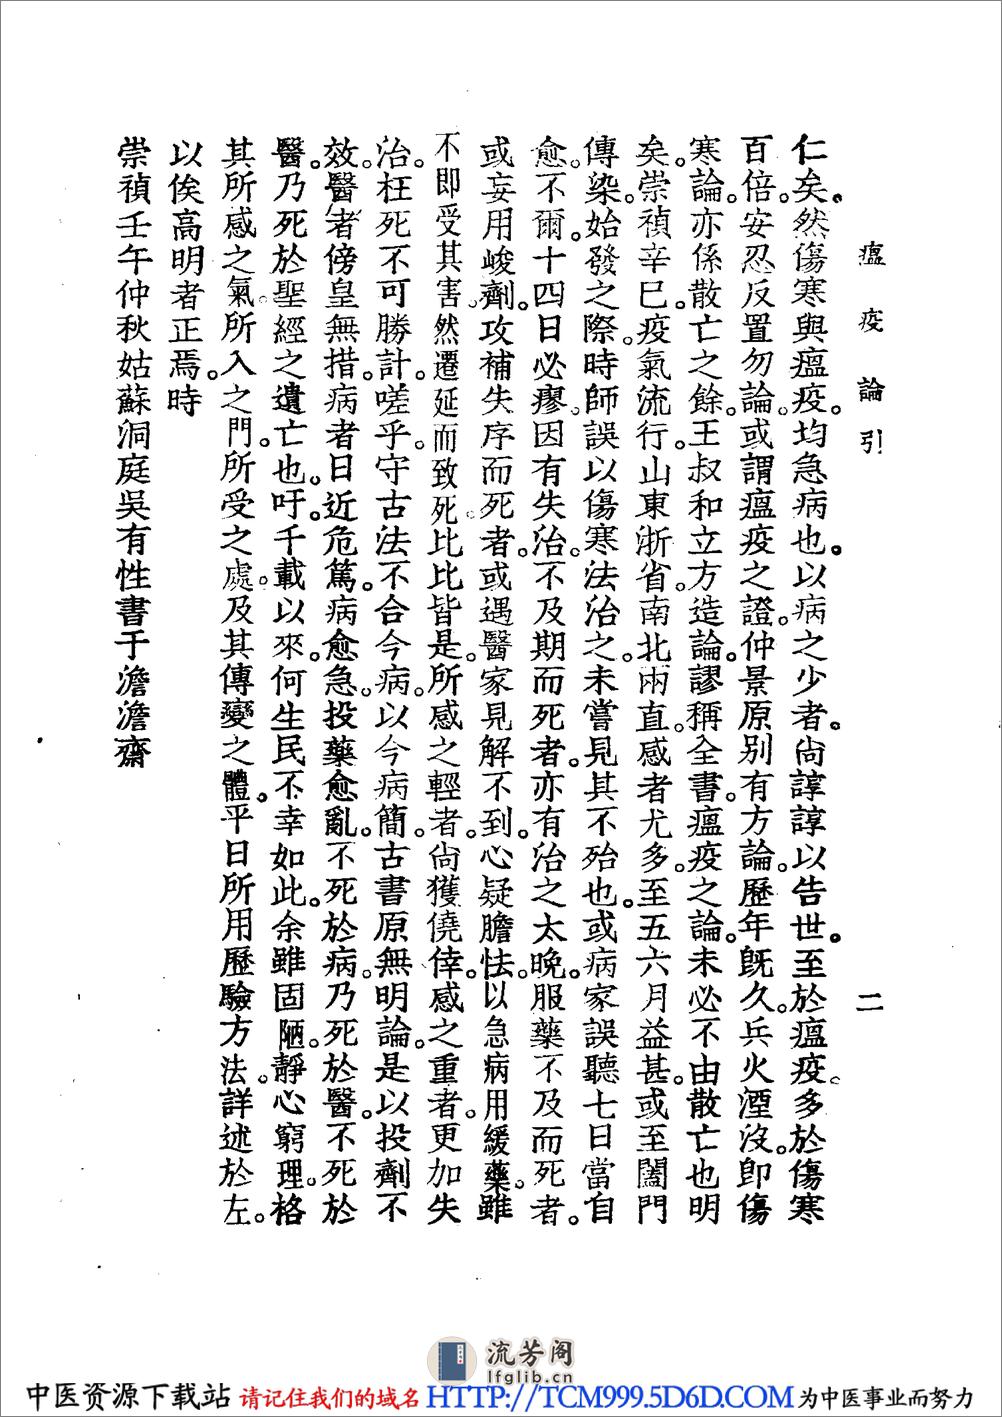 瘟疫論引
二
仁矣。然傷寒與瘟疫。均急病也。以病之少者。尙諄諄以告世。至於瘟疫。多於傷寒
百倍。安忍反置勿論。或謂瘟疫之證。仲景原別有方論。歷年既久。兵火湮沒。卽傷
寒論。亦係散亡之餘。王叔和立方造論。謬稱全書。瘟疫之論。未必不由散亡也明
矣。崇禎辛巳。疫氣流行。山東浙省。南北兩直。感者尤多。至五六月益甚。或至闔門
傳染。始發之際。時師誤以傷寒法治之。未嘗見其不殆也。或病家誤聽七日當自
愈。不爾。十四日必瘳。因有失治。不及期而死者。亦有治之太晚。服藥不及而死者。
或妄用峻劑。攻補失序而死者。或遇醫家見解不到。心疑膽怯。以急病用緩藥。雖
不卽受其害。然遷延而致死。比比皆是。所感之輕者。尙獲僥倖。感之重者。更加失
治。枉死不可勝計。嗟乎。守古法不合今病。以今病簡。古書原無明論。是以投劑不
效。醫者傍皇無措。病者日近危篤。病愈急。投藥愈亂。不死於病。乃死於醫。不死於
醫。乃死於聖經之遺亡也。吁。千載以來。何生民不幸如此。余雖固陋。靜心窮理。格
其所感之氣。所入之門。所受之處。及其傳變之體。平日所用歷驗方法。詳述於左。
以俟高明者正焉。時
崇禎壬午仲秋姑蘇洞庭吳有性書于澹澹齋
流芳阁
lfglib.cn
中医资源下载站 请记住我们的域名 HTTP://TCM999.5D6D.COM 为中医事业而努力